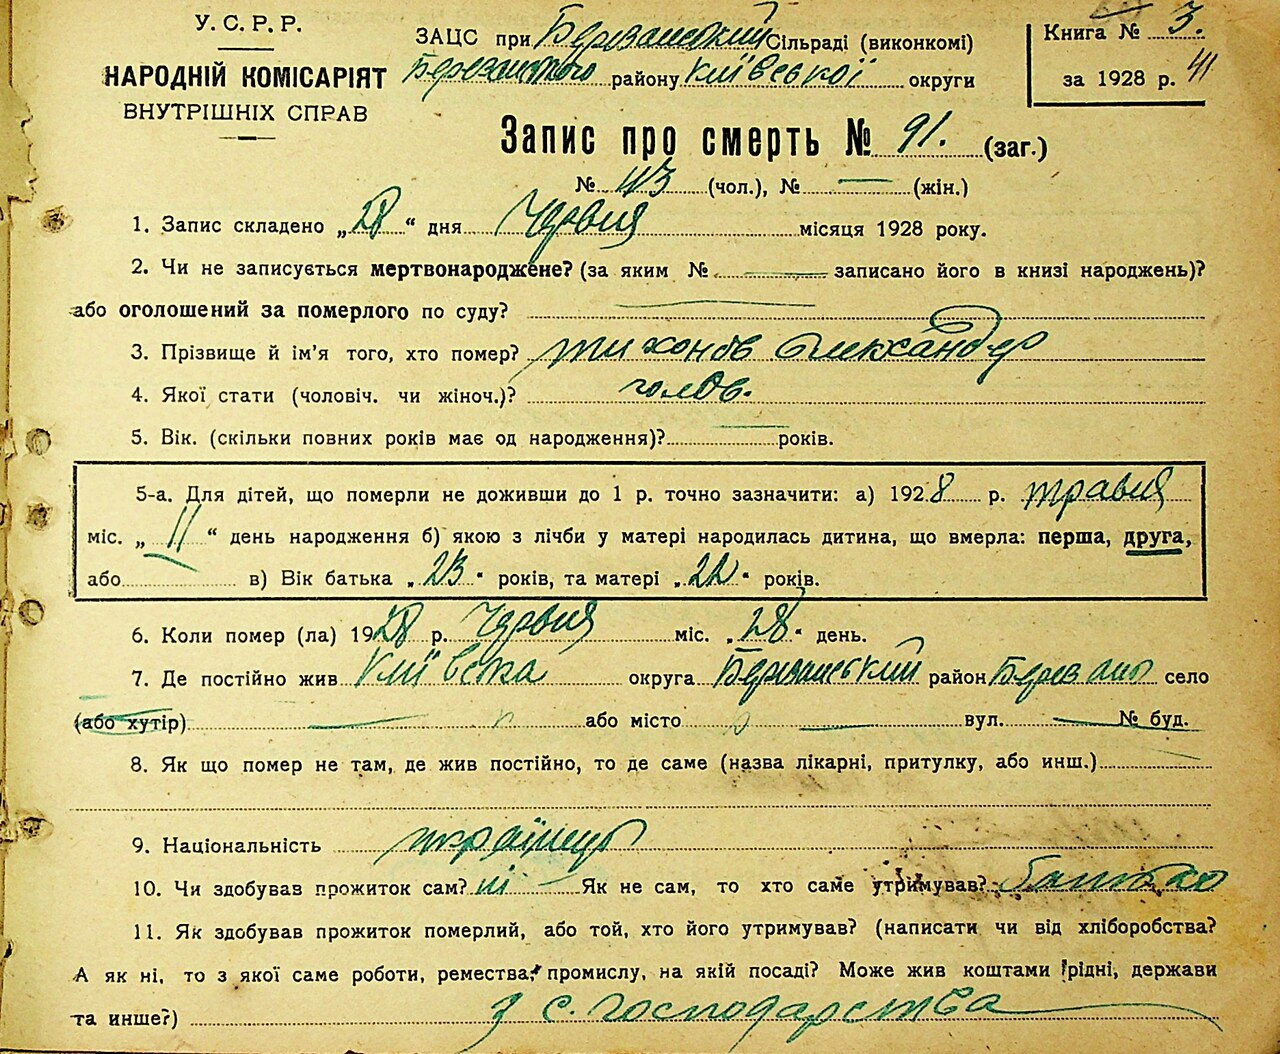 У. С. Р. Р.
НАРОДНІЙ КОМІСАРІЯТ
ВНУТРІШНІХ СПРАВ
ЗАЦС при Березанський Сільраді (виконкомі)
Березанського району Київської округи
Книга № 3.
за 1928 р. 41
Запис про смерть № 91. (заг.)
№ 43 (чол.), № — (жін.)
1. Запис складено „28“ дня Червня місяця 1928 року.
2. Чи не записується мертвонароджене? (за яким № — записано його в книзі народжень)?
або оголошений за померлого по суду? —
3. Прізвище й ім’я того, хто помер? Тихонов Олександер
4. Якої стати (чоловіч. чи жіноч.)? чолов.
5. Вік. (скільки повних років має од народження)? — років.
5-а. Для дітей, що померли не доживши до 1 р. точно зазначити: а) 1928 р. травня
міс. „11“ день народження б) якою з лічби у матері народилась дитина, що вмерла: перша, друга,
або в) Вік батька „23“ років, та матері „22“ років.
6. Коли помер (ла) 1928 р. Червня міс. „28“ день.
7. Де постійно жив Київська округа Березанський район Березань село
(або хутір) — або місто — вул. — № буд.
8. Як що помер не там, де жив постійно, то де саме (назва лікарні, притулку, або инш.)
9. Національність українець
10. Чи здобував прожиток сам? ні — Як не сам, то хто саме утримував? батько
11. Як здобував прожиток померлий, або той, хто його утримував? (написати чи від хліборобства?
А як ні, то з якої саме роботи, ремества, промислу, на якій посаді? Може жив коштами рідні, держави
та инше?) з с. господарства